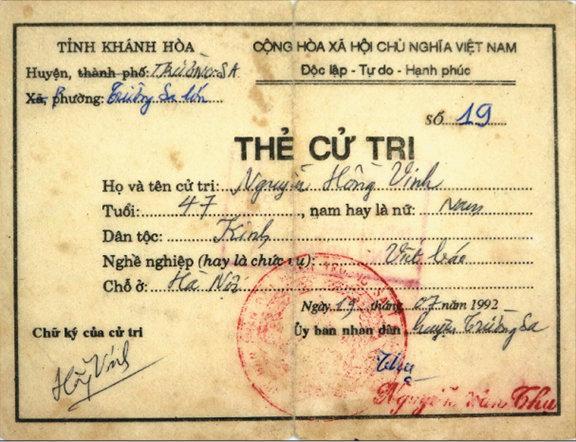 TỈNH KHÁNH HÒA
CỘNG HÒA XÃ HỘI CHỦ NGHĨA VIỆT NAM
Huyện, thành phố: TRƯỜNG SA
Độc lập - Tự do - Hạnh phúc
Xã, phường: Trường Sa lớn
số 19
THẺ CỬ TRI
Họ và tên cử tri: Nguyễn Hồng Vinh
Tuổi: 47, nam hay là nữ: nam
Dân tộc: Kinh
Nghề nghiệp (hay là chức vụ): Viết báo
Chỗ ở: Hà Nội
Ngày 19 tháng 07 năm 1992
Chữ ký của cử tri
Ủy ban nhan dân huyện Trường Sa
Nguyễn văn Thu